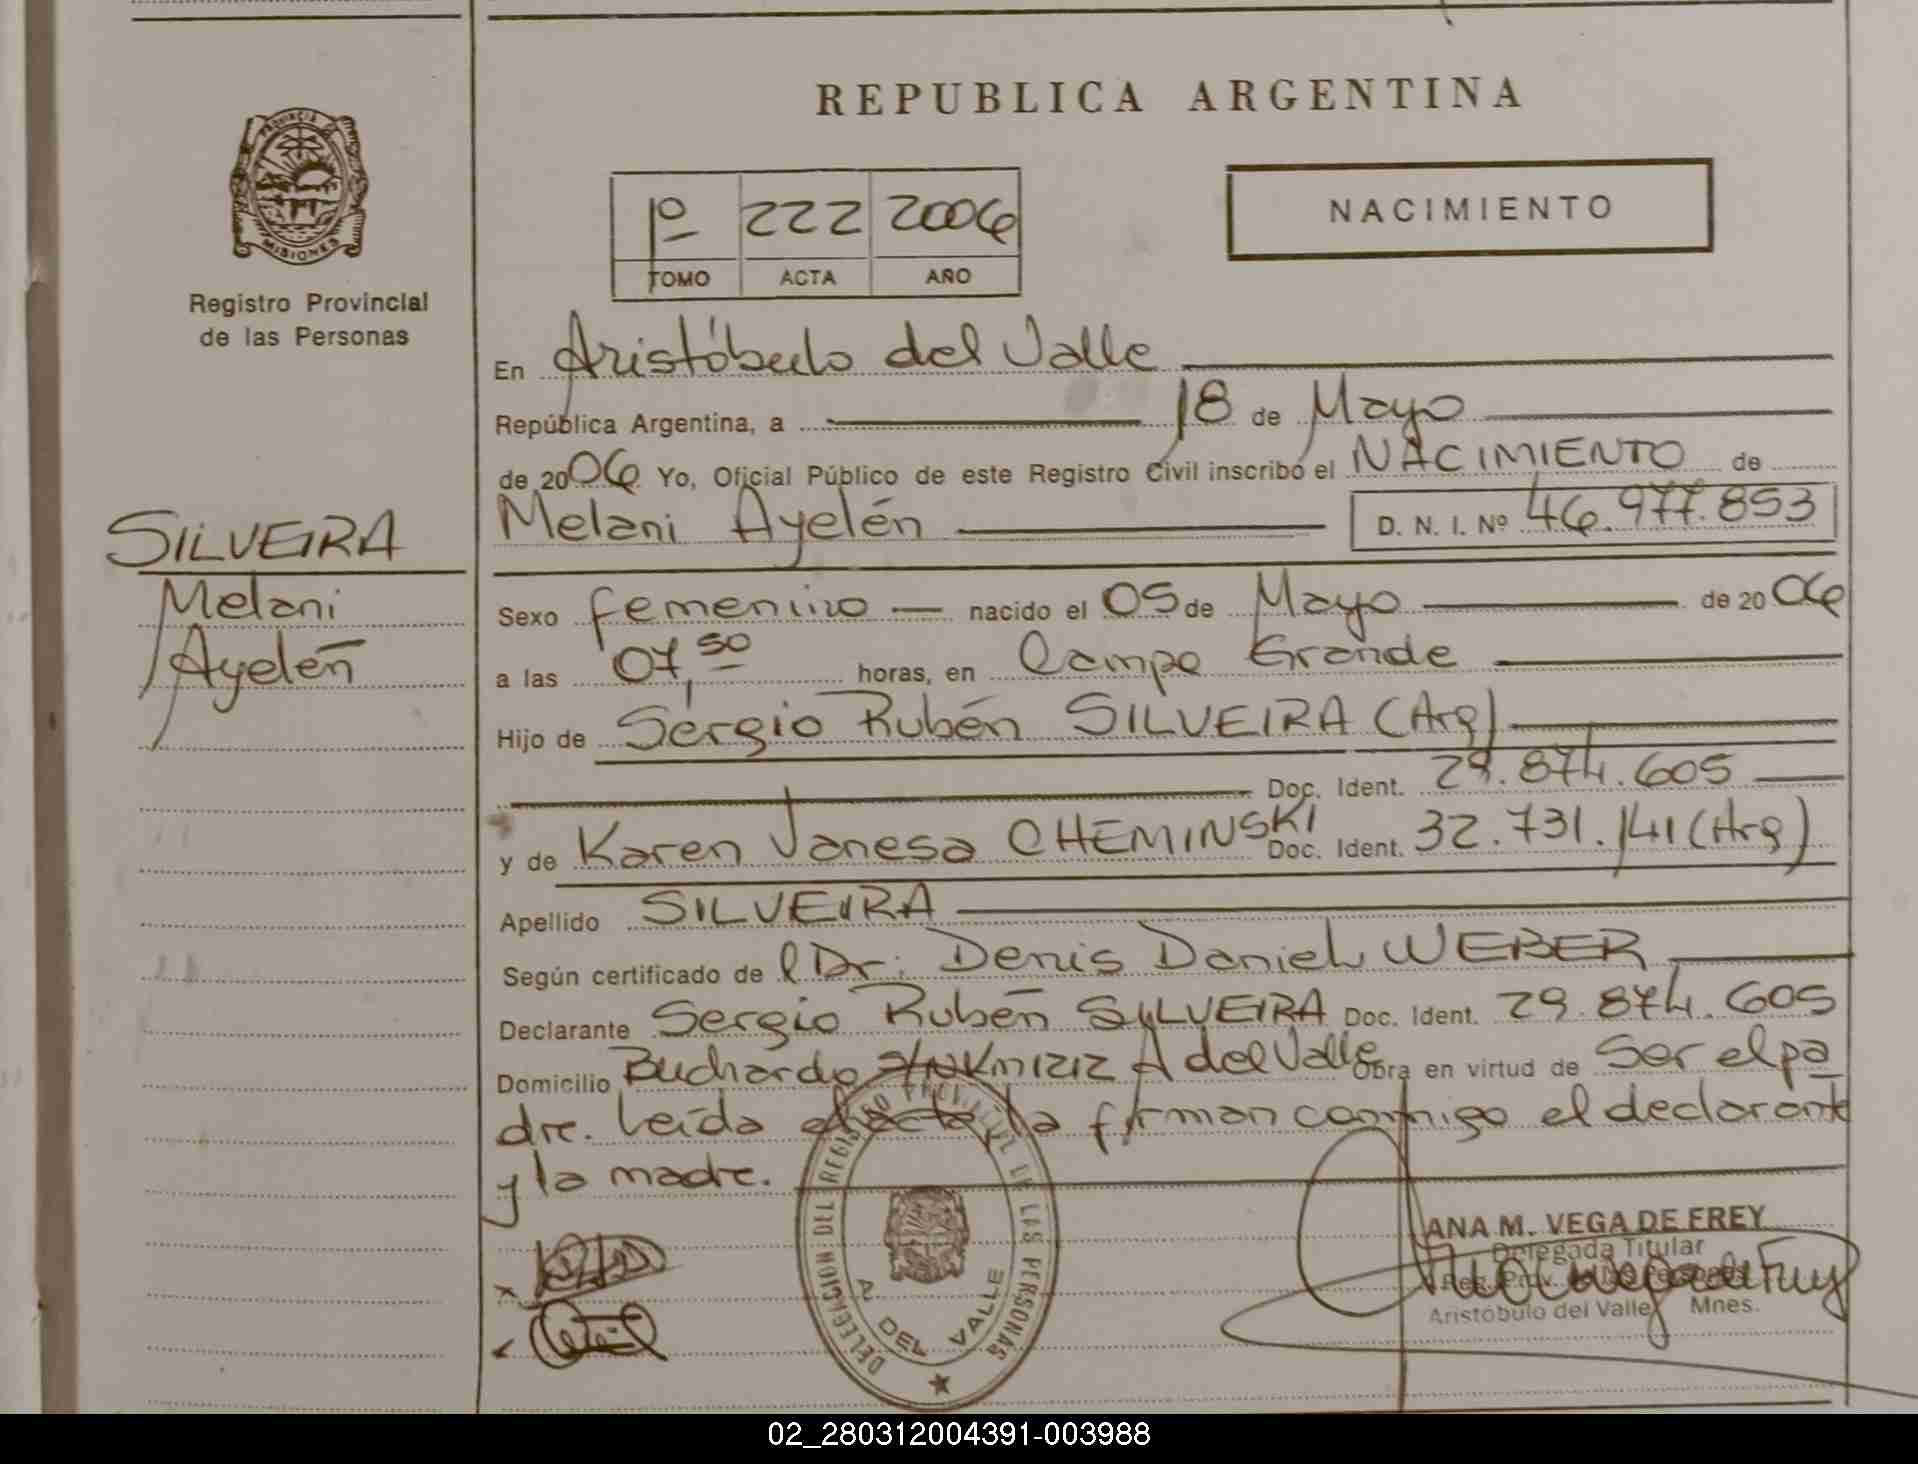 REPUBLICA ARGENTINA
PROVINCIA DE
MISIONES
Registro Provincial
de las Personas
1º 222 2006
TOMO ACTA AÑO
NACIMIENTO
En Aristóbulo del Valle
República Argentina, a 18 de Mayo
de 2006 Yo, Oficial Público de este Registro Civil inscribo el NACIMIENTO de
Melani Ayelén D. N. I. Nº 46.977.853
SILVEIRA
Melani
Ayelén
Sexo femenino nacido el 05 de Mayo de 2006
a las 07,50 horas, en Campo Grande
Hijo de Sergio Rubén SILVEIRA (Arg)
Doc. Ident. 29.874.605
y de Karen Vanesa CHEMINSKI Doc. Ident. 32.731.141 (Arg)
Apellido SILVEIRA
Según certificado del Dr. Denis Daniel WEBER
Declarante Sergio Rubén SILVEIRA Doc. Ident. 29.874.605
Domicilio Buchardo S/N Km 1212 A del Valle Obra en virtud de Ser el pa
dre. Leída el acta la firman conmigo el declarante
y la madre.
DELEGACION DEL REGISTRO PROVINCIAL DE LAS PERSONAS
A. DEL VALLE
ANA M. VEGA DE FREY
Delegada Titular
Reg. Prov.
Aristóbulo del Valle Mnes.
02_280312004391-003988